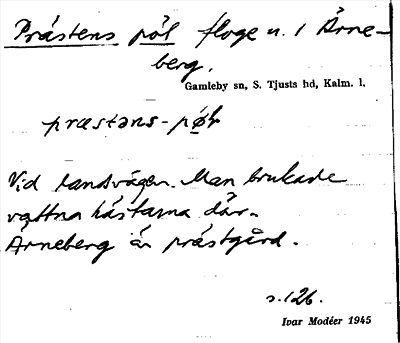 Prästens pöl floge u. / Årne-
berg.
Gamleby sn, S. Tjusts hd, Kalm. l.
præstəns-pø̜l
Vid landsvägen. Man brukade
vattna hästarna där.
Årneberg är prästgård.
s. 126.
Ivar Modéer 1945